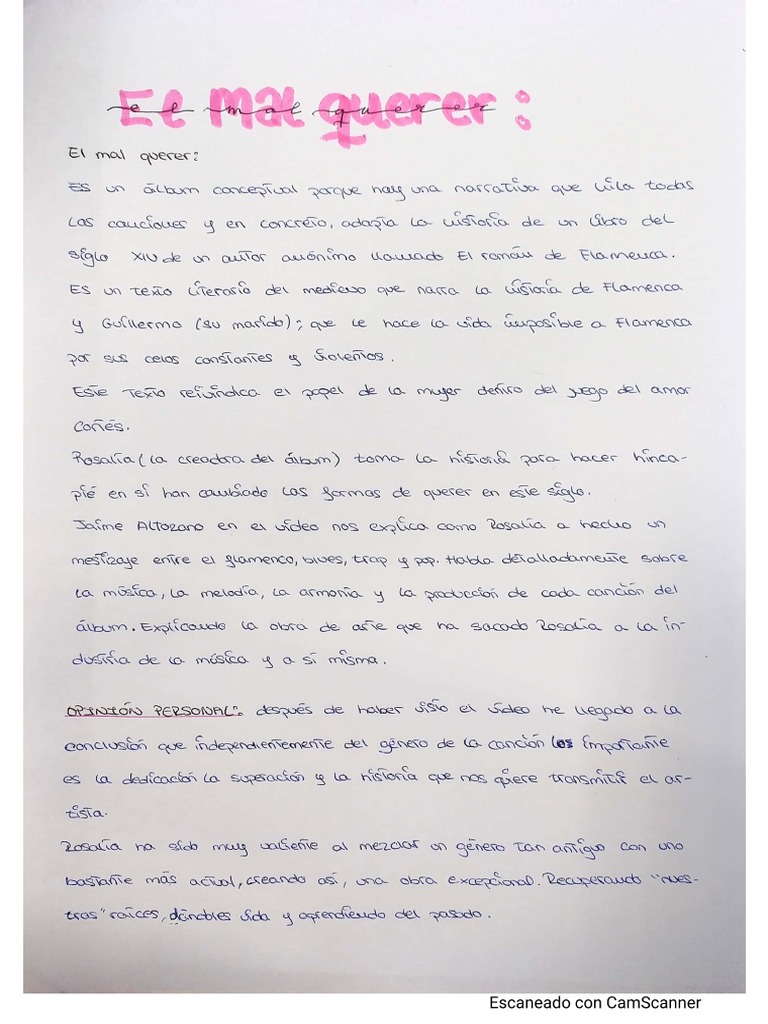 El mal querer:
el mal querer
El mal querer:
Es un álbum conceptual porque hay una narrativa que hila todas
las canciones y en concreto, adapta la historia de un libro del
siglo XIV de un autor anónimo llamado El román de Flamenca.
Es un texto literario del medievo que narra la historia de Flamenca
y Guillermo (su marido); que le hace la vida imposible a Flamenca
por sus celos constantes y violentos.
Este texto reivindica el papel de la mujer dentro del juego del amor
cortés.
Rosalía (la creadora del álbum) toma la historia para hacer hinca-
pié en si han cambiado las formas de querer en este siglo.
Jaime Altozano en el vídeo nos explica como Rosalía a hecho un
mestizaje entre el flamenco, blues, trap y pop. Habla detalladamente sobre
la música, la melodía, la armonía y la producción de cada canción del
álbum. Explicando la obra de arte que ha sacado Rosalía a la in-
dustria de la música y a si misma.
OPINIÓN PERSONAL: después de haber visto el vídeo he llegado a la
conclusión que independientemente del género de la canción los importante
es la dedicación la superación y la historia que nos quiere transmitir el ar-
tista.
Rosalía ha sido muy valiente al mezclar un género tan antiguo con uno
bastante más actual, creando así, una obra excepcional. Recuperando "nues-
tras" raíces, dándoles vida y aprendiendo del pasado.
Escaneado con CamScanner